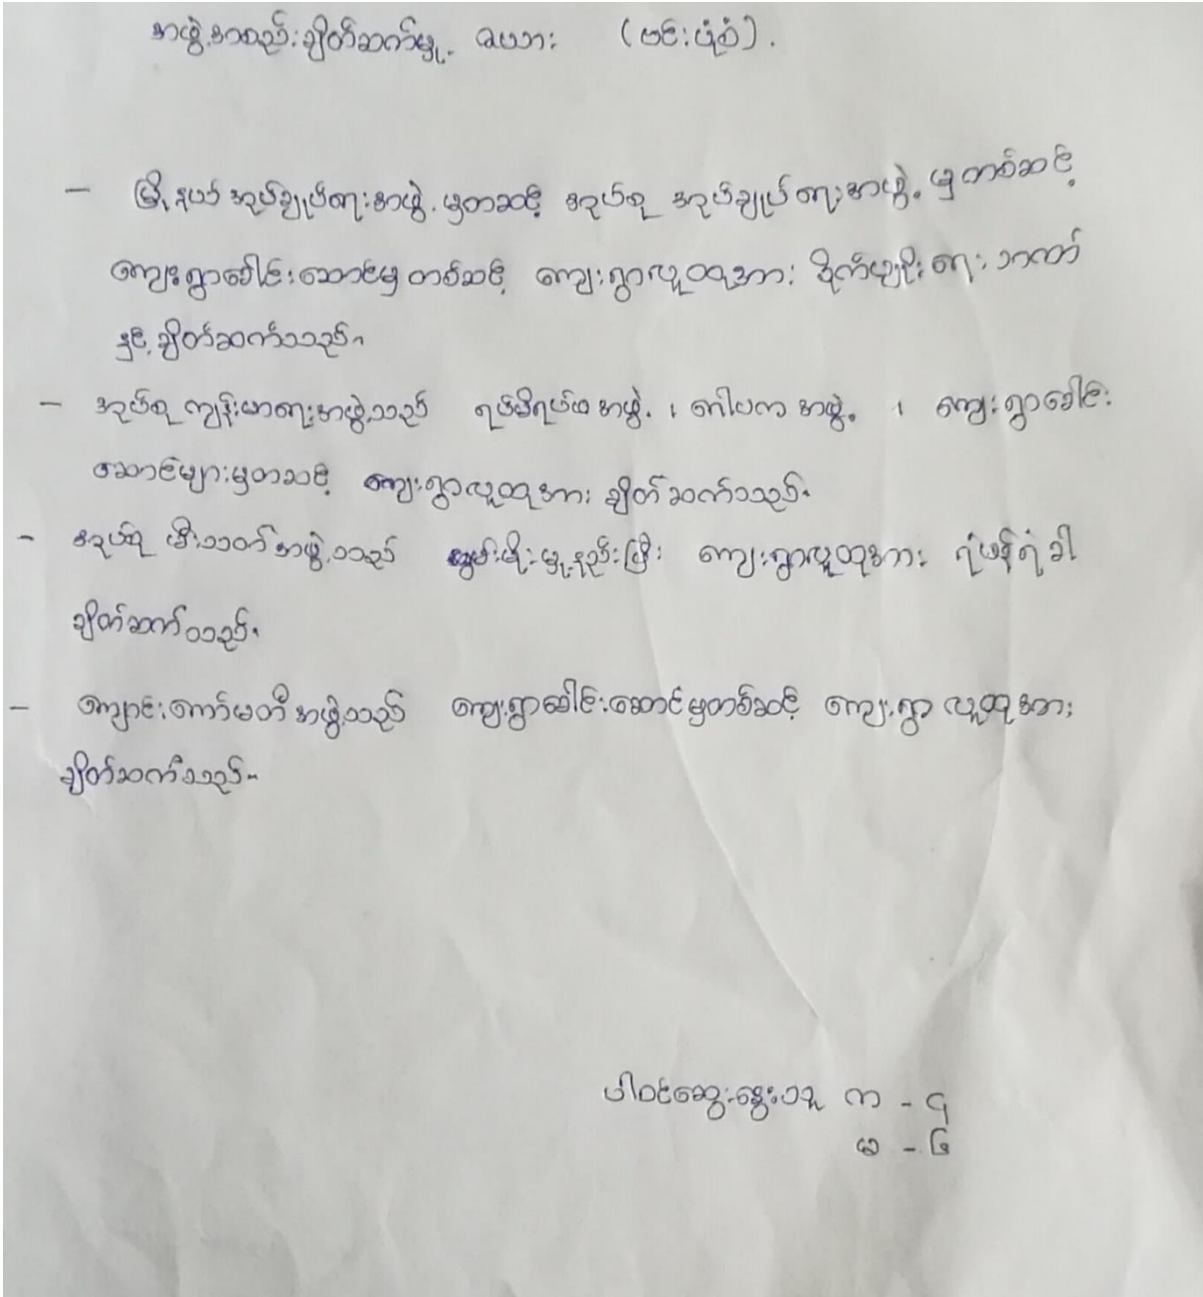 အဖွဲ့အစည်းချိတ်ဆက်မှု ဇယား (ဗင်းပုံစံ).
- မြို့နယ် အုပ်ချုပ်ရေးအဖွဲ့ မှတဆင့် အုပ်စု အုပ်ချုပ်ရေးအဖွဲ့ မှတစ်ဆင့်
ကျေးရွာခေါင်းဆောင်မှ တစ်ဆင့် ကျေးရွာလူထုအား စိုက်ပျိုးရေး ဘဏ်
နှင့် ချိတ်ဆက်သည်။
- အုပ်စု ကျန်းမာရေးအဖွဲ့သည် ရပ်မိရပ်ဖ အဖွဲ့ ၊ ဂေါပက အဖွဲ့ ၊ ကျေးရွာခေါင်း
ဆောင်များမှတဆင့် ကျေးရွာလူထုအား ချိတ်ဆက်သည်။
- အုပ်စု မီးသတ်အဖွဲ့သည် လွှမ်းမိုးမှုနည်းပြီး ကျေးရွာလူထုအား ရံဖန်ရံခါ
ချိတ်ဆက်သည်။
- ကျောင်းကော်မတီအဖွဲ့သည် ကျေးရွာခေါင်းဆောင်မှတစ်ဆင့် ကျေးရွာ လူထုအား
ချိတ်ဆက်သည်။
ပါဝင်ဆွေးနွေးသူ က - ၄
မ - ၆